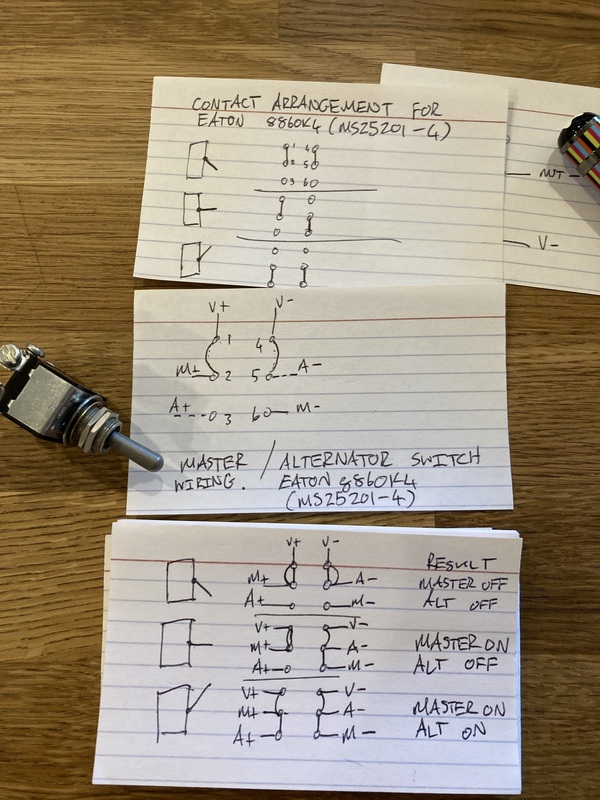 CONTACT ARRANGEMENT FOR
EATON 8860K4 (MS25201-4)
1 4
2 5
3 6
MT
V-
V+ V-
1 4
M+ 2 5 A-
A+ 3 6 M-
MASTER / ALTERNATOR SWITCH
WIRING. EATON 8860K4
(MS25201-4)
V+ V- RESULT
M+ A- MASTER OFF
A+ M- ALT OFF
V+ V-
M+ A- MASTER ON
A+ M- ALT OFF
V+ V-
M+ A- MASTER ON
A+ M- ALT ON